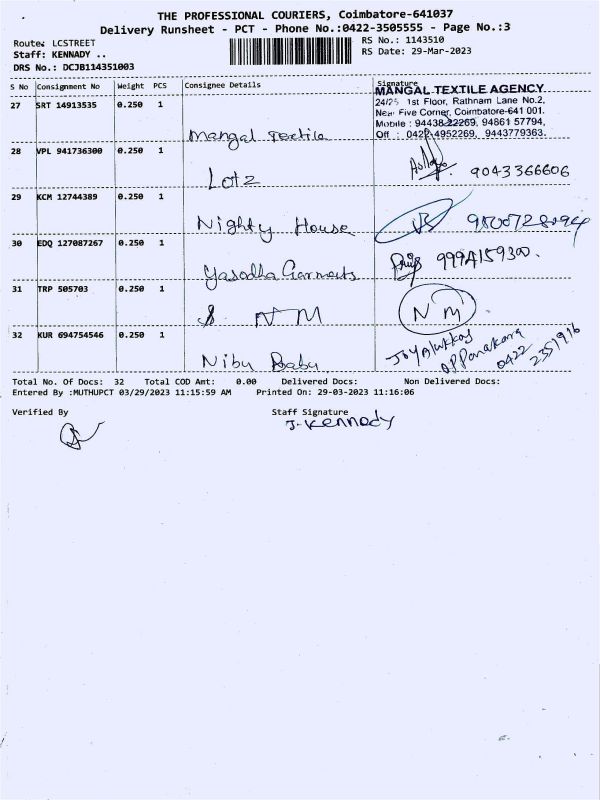 THE PROFESSIONAL COURIERS, Coimbatore-641037
Delivery Runsheet - PCT - Phone No.:0422-3505555 - Page No.:3
Route: LCSTREET
Staff: KENNADY ..
DRS No.: DCJB114351003
RS No.: 1143510
RS Date: 29-Mar-2023
S No Consignment No Weight PCS Consignee Details Signature
27 SRT 14913535 0.250 1
Mangal Textile
MANGAL TEXTILE AGENCY
24/25 1st Floor, Rathnam Lane No.2,
Near Five Corner, Coimbatore-641 001.
Mobile : 94438 22269, 94861 57794,
Off : 0422-4952269, 9443779363.
28 VPL 941736300 0.250 1
Lotz
9043366606
29 KCM 12744389 0.250 1
Nighty House
30 EDQ 127087267 0.250 1
Yasodha Garments
9994159300.
31 TRP 505703 0.250 1
S. NM
NM
32 KUR 694754546 0.250 1
Nibu Babu
Joyalukkas
0422
2351916
Total No. Of Docs: 32 Total COD Amt: 0.00 Delivered Docs: Non Delivered Docs:
Entered By :MUTHUPCT 03/29/2023 11:15:59 AM Printed On: 29-03-2023 11:16:06
Verified By
Staff Signature
J. Kennedy